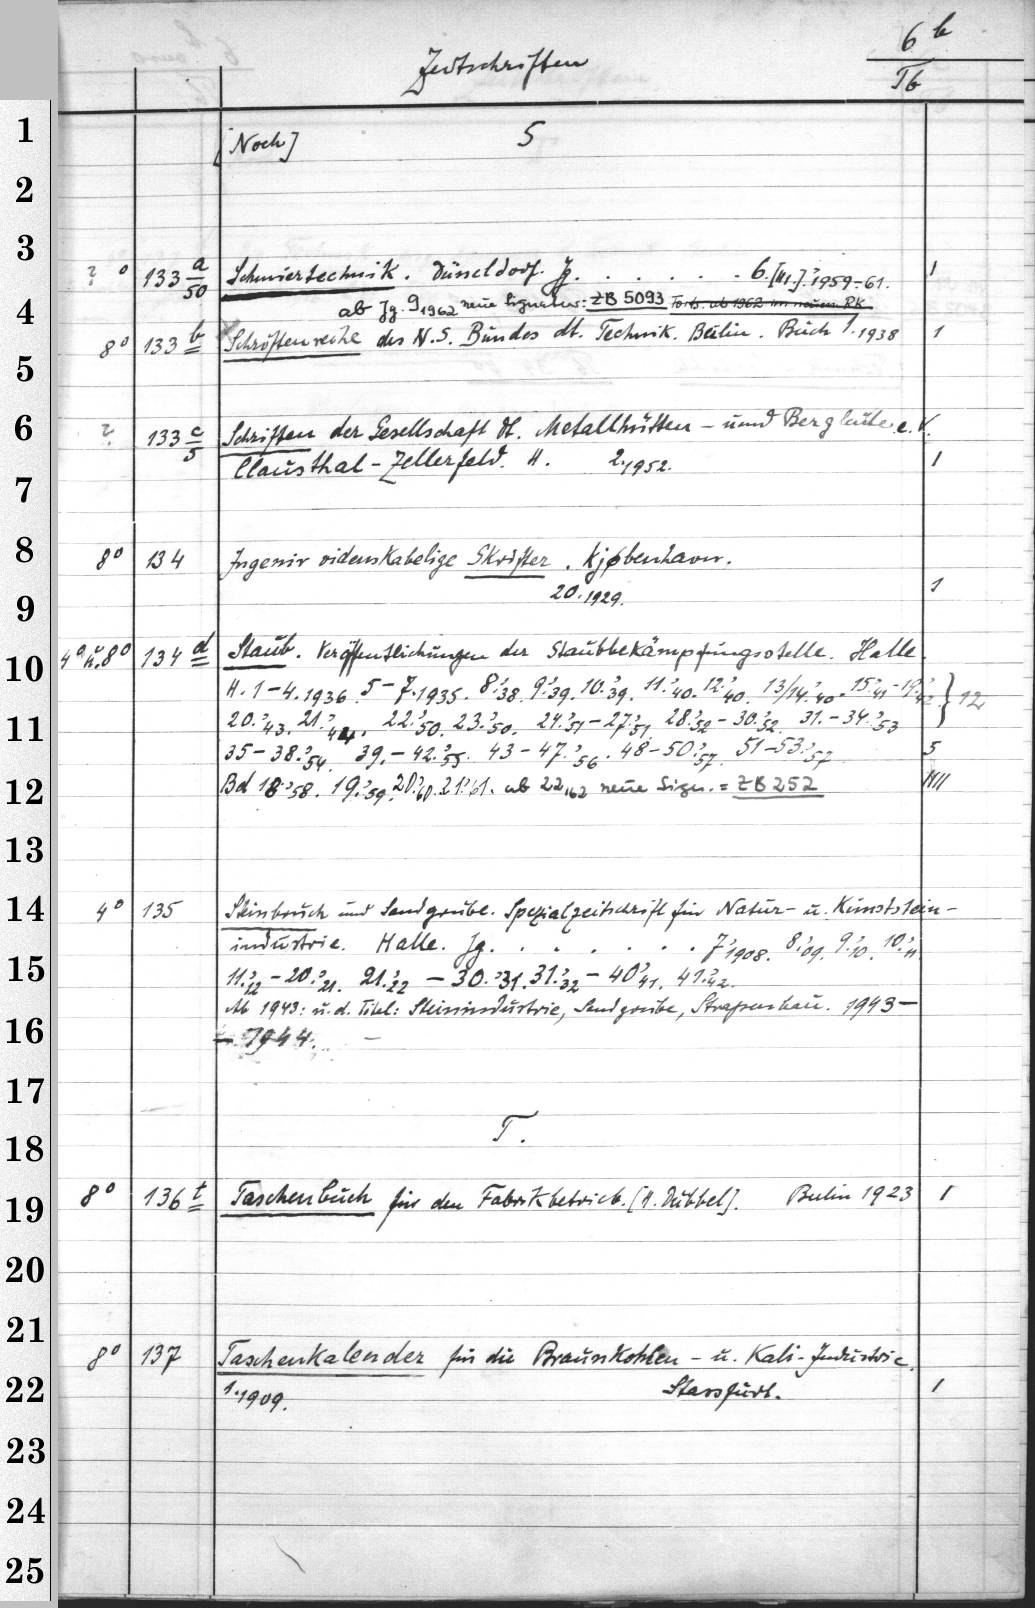 Zeitschriften
6 b
Tb
1
[Noch] S
2
3
? 0 133 a/50 Schmiertechnik. Düsseldorf. Jg. . . . . . . 6.[III.].'1959-61. 1
4
ab Jg. 9 1962 neue Signatur: ZB 5093 Forts. ab 1962 im neuen RK
8° 133 b Schriftenreihe des N.S. Bundes dt. Technik. Berlin. Buch 1. 1938 1
5
6
? 133 c/5 Schriften der Gesellschaft Dt. Metallhütten- und Bergleute e. V.
Clausthal-Zellerfeld. H. 2. 1952. 1
7
8
8° 134 Ingeniørvidenskabelige Skrifter. Kjøbenhavn.
20. 1929. 1
9
10
4° u. 8° 134 d Staub. Veröffentlichungen der Staubbekämpfungsstelle. Halle.
H. 1-4. 1936. 5-7. 1935. 8.'38. 9.'39. 10.'39. 11.'40. 12.'40. 13/14.'40. 15.'41-19.'42. } 12
11
20.'43. 21.'44. 22.'50. 23.'50. 24.'51-27.'51. 28.'52-30.'52. 31.-34.'53
35-38.'54. 39.-42.'55. 43-47.'56. 48-50.'57. 51-53.'57 5
12
Bd 18.'58. 19.'59. 20.'60. 21.'61. ab 22,'62 neue Sign. = ZB 252 IIII
13
14
4° 135 Steinbruch und Sandgrube. Spezialzeitschrift für Natur- u. Kunststein-
industrie. Halle. Jg. . . . . . . 7.'1908. 8.'09. 9.'10. 10.'11.
15
11.'12-20.'21. 21.'22-30.'31. 31.'32-40.'41. 41.'42.
Ab 1943: u. d. Titel: Steinindustrie, Sandgrube, Strassenbau. 1943-
16
- 1944. -
17
T.
18
19
8° 136 t Taschenbuch für den Fabrikbetrieb. [H. Dubbel]. Berlin 1923 1
20
21
8° 137 Taschenkalender für die Braunkohlen- u. Kali-Industrie.
22
1. 1909. Stassfurt. 1
23
24
25